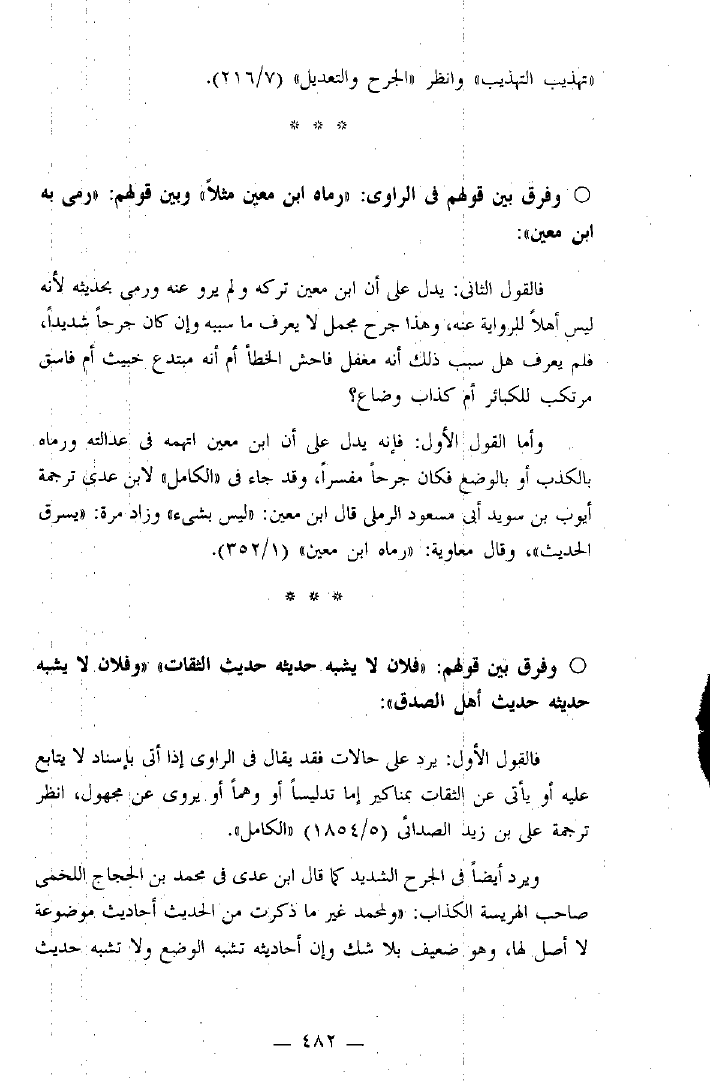 «تهذيب التهذيب» وانظر «الجرح والتعديل» (٢١٦/٧).
* * *
○ وفرق بين قولهم فى الراوى: «رماه ابن معين مثلاً» وبين قولهم: «رمى به
ابن معين»:
فالقول الثانى: يدل على أن ابن معين تركه ولم يرو عنه ورمى بحديثه لأنه
ليس أهلاً للرواية عنه، وهذا جرح مجمل لا يعرف ما سببه وإن كان جرحاً شديداً،
فلم يعرف هل سبب ذلك أنه مغفل فاحش الخطأ أم أنه مبتدع خبيث أم فاسق
مرتكب للكبائر أم كذاب وضاع؟
وأما القول الأول: فإنه يدل على أن ابن معين اتهمه فى عدالته ورماه
بالكذب أو بالوضع فكان جرحاً مفسراً، وقد جاء فى «الكامل» لابن عدى ترجمة
أيوب بن سويد أبى مسعود الرملى قال ابن معين: «ليس بشىء» وزاد مرة: «يسرق
الحديث»، وقال معاوية: «رماه ابن معين» (٣٥٢/١).
* * *
○ وفرق بين قولهم: «فلان لا يشبه حديثه حديث الثقات» «وفلان لا يشبه
حديثه حديث أهل الصدق»:
فالقول الأول: يرد على حالات فقد يقال فى الراوى إذا أتى بإسناد لا يتابع
عليه أو يأتى عن الثقات بمناكير إما تدليساً أو وهماً أو يروى عن مجهول، انظر
ترجمة على بن زيد الصدائى (١٨٥٤/٥) «الكامل».
ويرد أيضاً فى الجرح الشديد كما قال ابن عدى فى محمد بن الحجاج اللخمى
صاحب الهريسة الكذاب: «ولمحمد غير ما ذكرت من الحديث أحاديث موضوعة
لا أصل لها، وهو ضعيف بلا شك وإن أحاديثه تشبه الوضع ولا تشبه حديث
— ٤٨٢ —